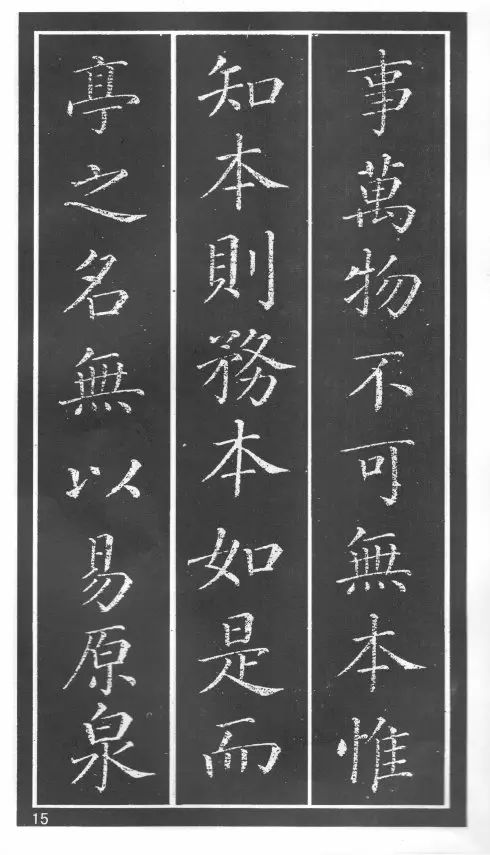 事萬物不可無本惟
知本則務本如是而
亭之名無以易原泉
15